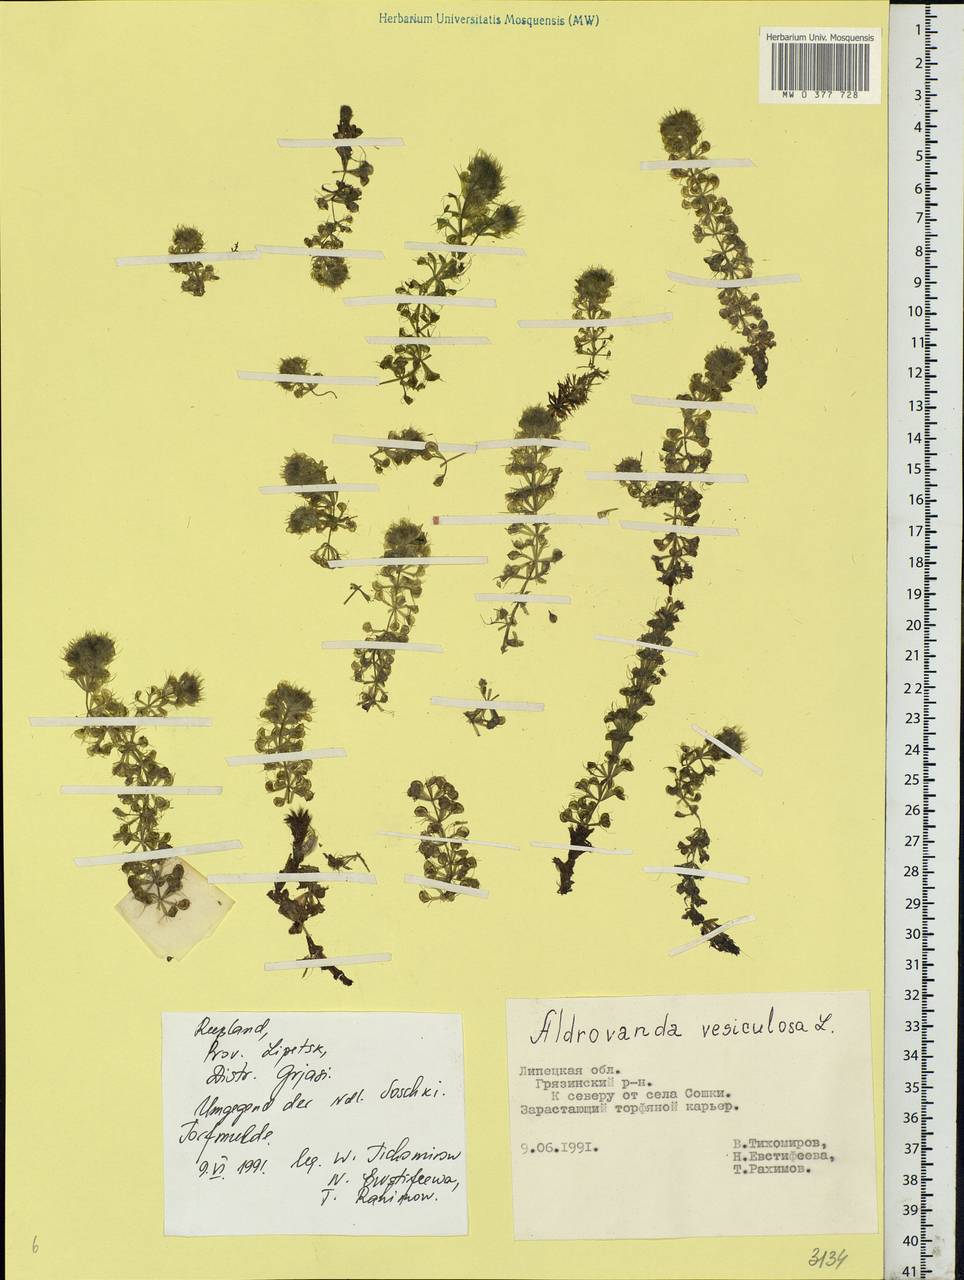 Herbarium Universitatis Mosquensis (MW)
Herbarium Univ. Mosquensis
MW 0 377 728
Aldrovanda vesiculosa L.
Липецкая обл.
Грязинский р-н.
К северу от села Сошки.
Зарастающий торфяной карьер.
9.06.1991.
В.Тихомиров,
Н.Евстифеева,
Т.Рахимов.
Prov. Lipetsk,
Distr. Grjasi.
Umgegend des Ndl. Soschki.
Torfmulde.
9.VI 1991. leg. W. Tichomirow
N. Ewstifeewa,
T. Rahimow.
6
3134
1
2
3
4
5
6
7
8
9
10
11
12
13
14
15
16
17
18
19
20
21
22
23
24
25
26
27
28
29
30
31
32
33
34
35
36
37
38
39
40
41